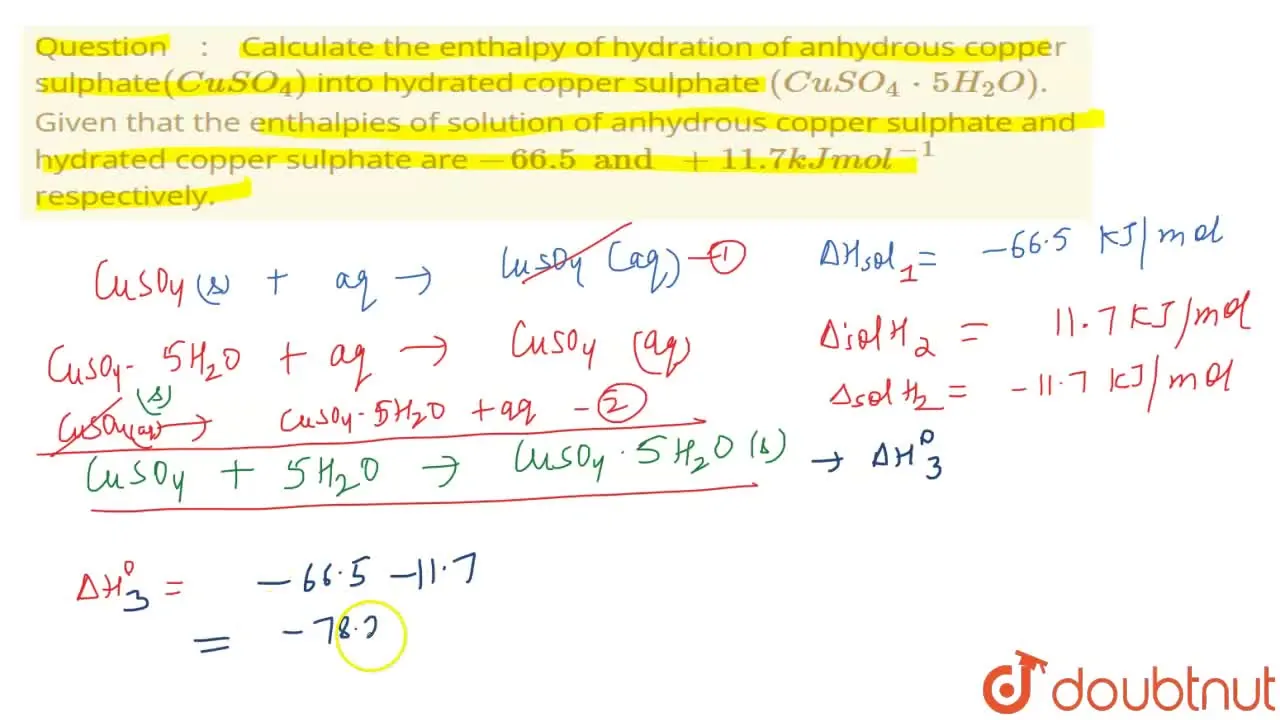 Question : Calculate the enthalpy of hydration of anhydrous copper
sulphate(CuSO₄) into hydrated copper sulphate (CuSO₄ · 5H₂O).
Given that the enthalpies of solution of anhydrous copper sulphate and
hydrated copper sulphate are −66.5 and +11.7kJmol⁻¹
respectively.
CuSO₄(s) + aq → CuSO₄ (aq) —① ΔHsol₁ = −66.5 KJ/mol
CuSO₄· 5H₂O + aq → CuSO₄ (aq) ΔsolH₂ = 11.7 KJ/mol
(s)
CuSO₄(aq) → CuSO₄·5H₂O + aq −② ΔsolH₂ = −11.7 KJ/mol
CuSO₄ + 5H₂O → CuSO₄·5H₂O (s) → ΔH°₃
ΔH°₃ = −66.5 −11.7
= −78.2
doubtnut